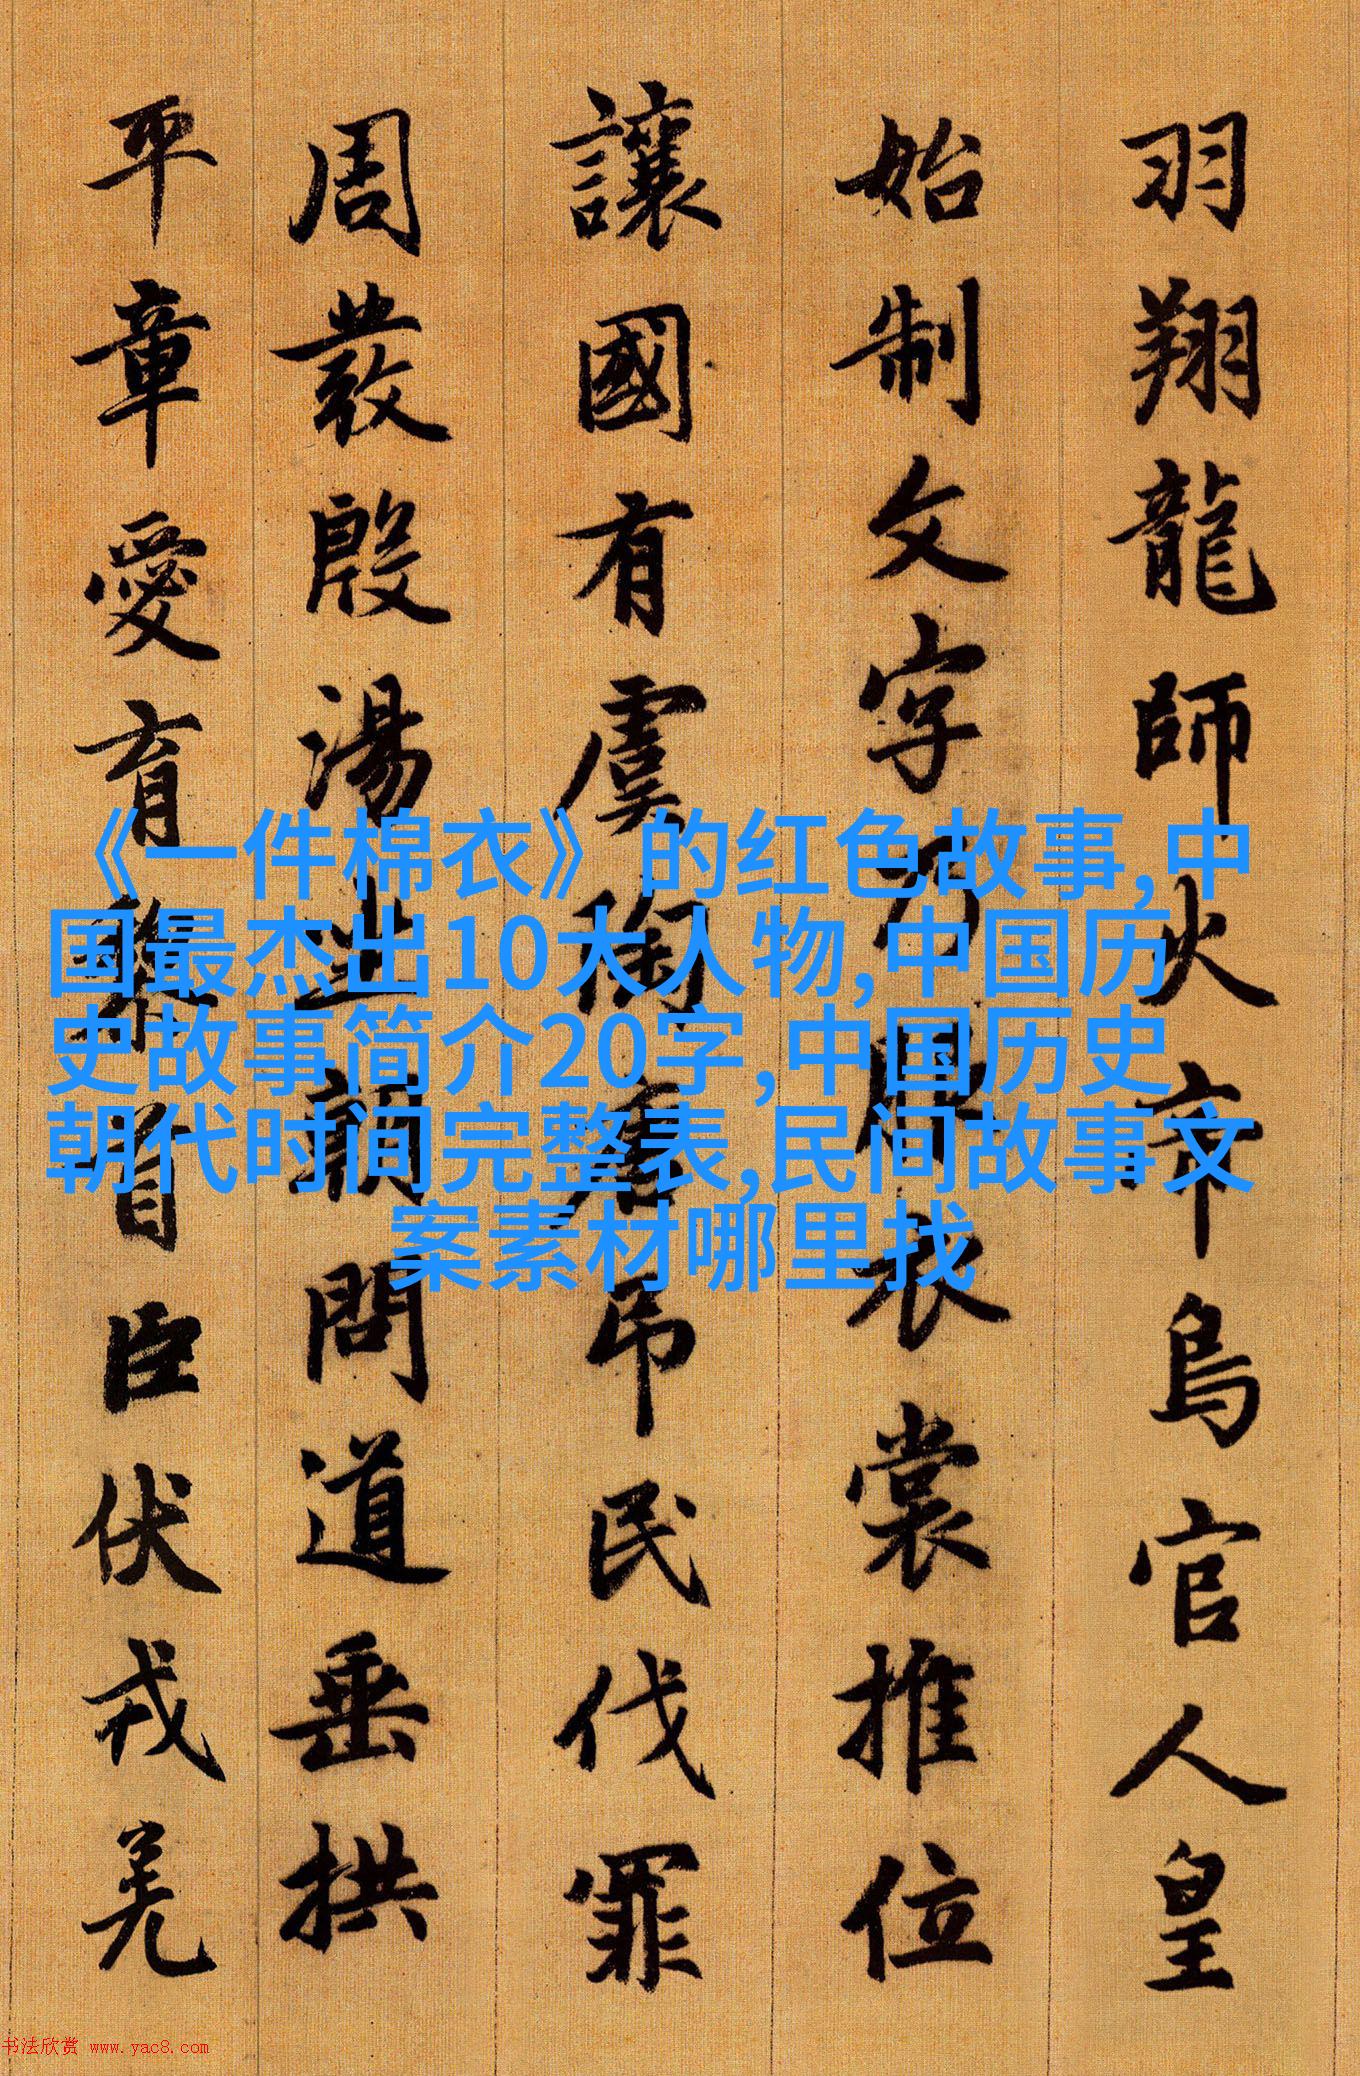 羽翔龍師火帝鳥官人皇
始制文字乃服衣裳推位
讓國有虞陶唐吊民伐罪
周發殷湯坐朝問道垂拱
平章愛育黎首臣伏戎羌
《一件棉衣》的红色故事,中
国最杰出10大人物,中国历
史故事简介20字,中国历史
朝代时间完整表,民间故事文
案素材哪里找
书法欣赏 www.yac8.com